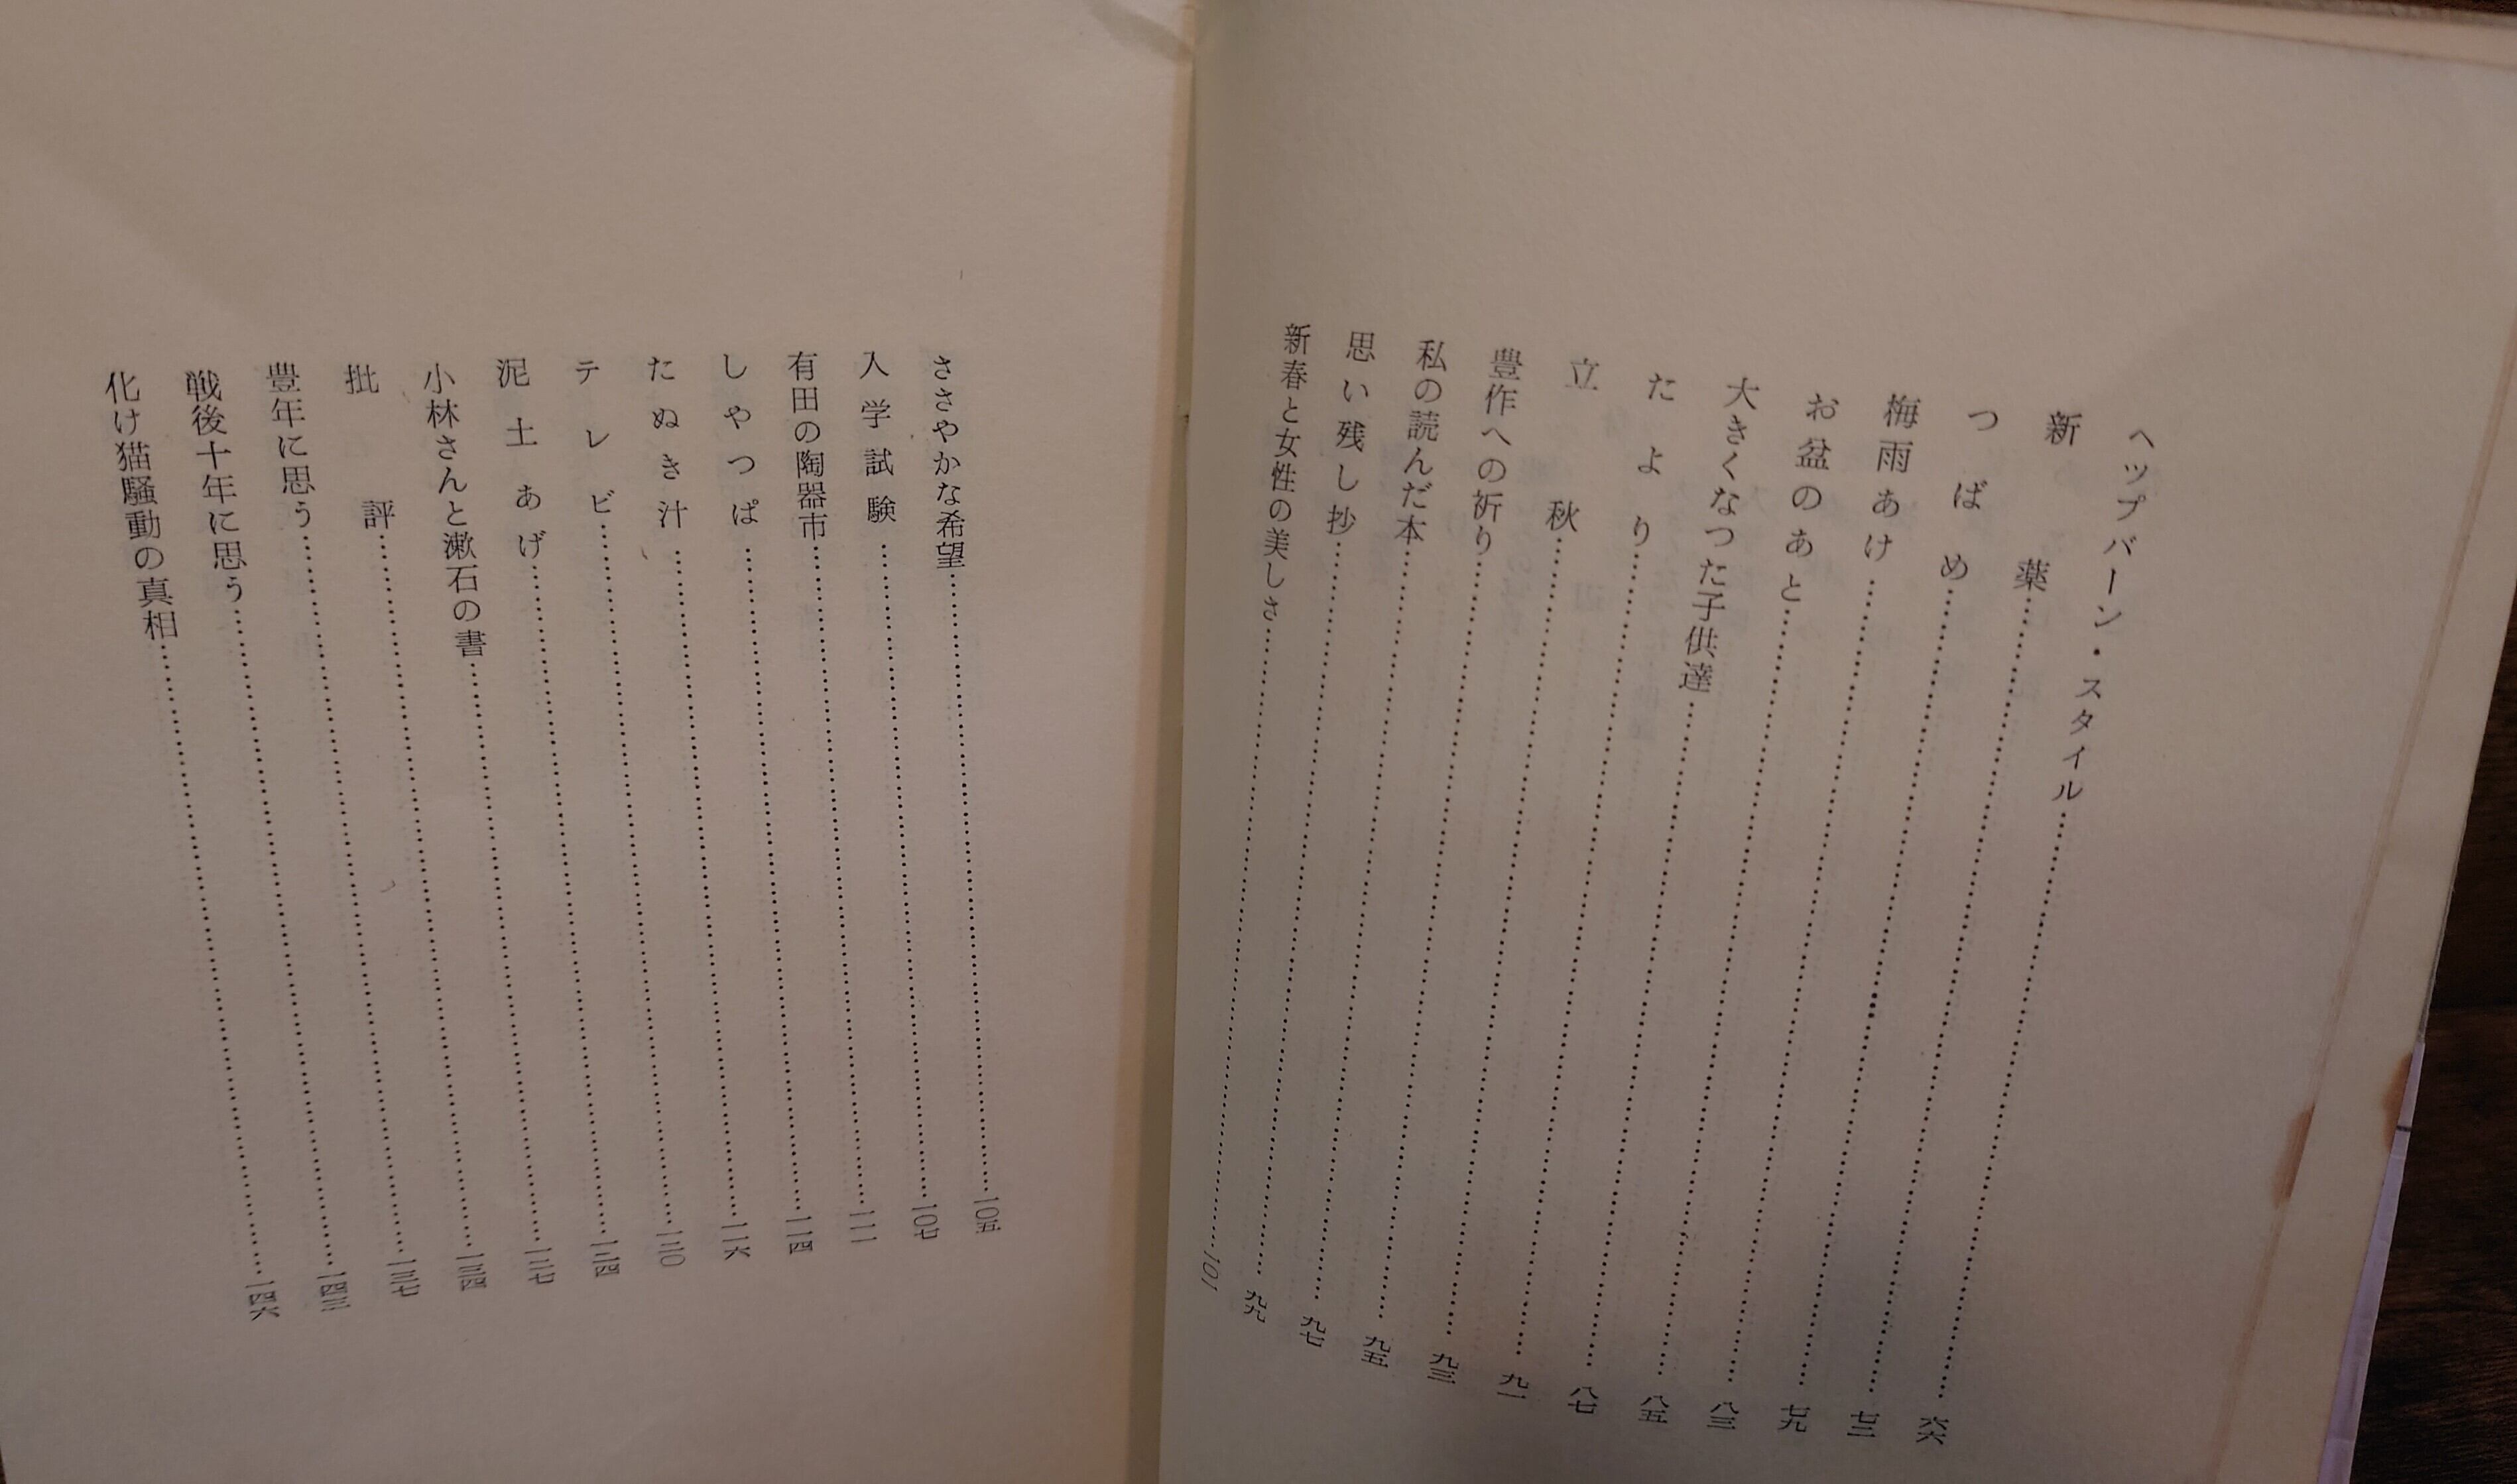 ヘップバーン・スタイル……六六
新薬……七三
つばめ……七九
梅雨あけ……八三
お盆のあと……八五
大きくなつた子供達……八七
たより……九一
立秋……九三
豊作への祈り……九五
私の読んだ本……九七
思い残し抄……九九
新春と女性の美しさ……101
ささやかな希望……一〇五
入学試験……一〇七
有田の陶器市……一一一
しやつぱ……一一四
たぬき汁……一一六
テレビ……一二〇
泥土あげ……一二四
小林さんと漱石の書……一二七
批評……一三四
豊年に思う……一三七
戦後十年に思う……一四三
化け猫騒動の真相……一四六